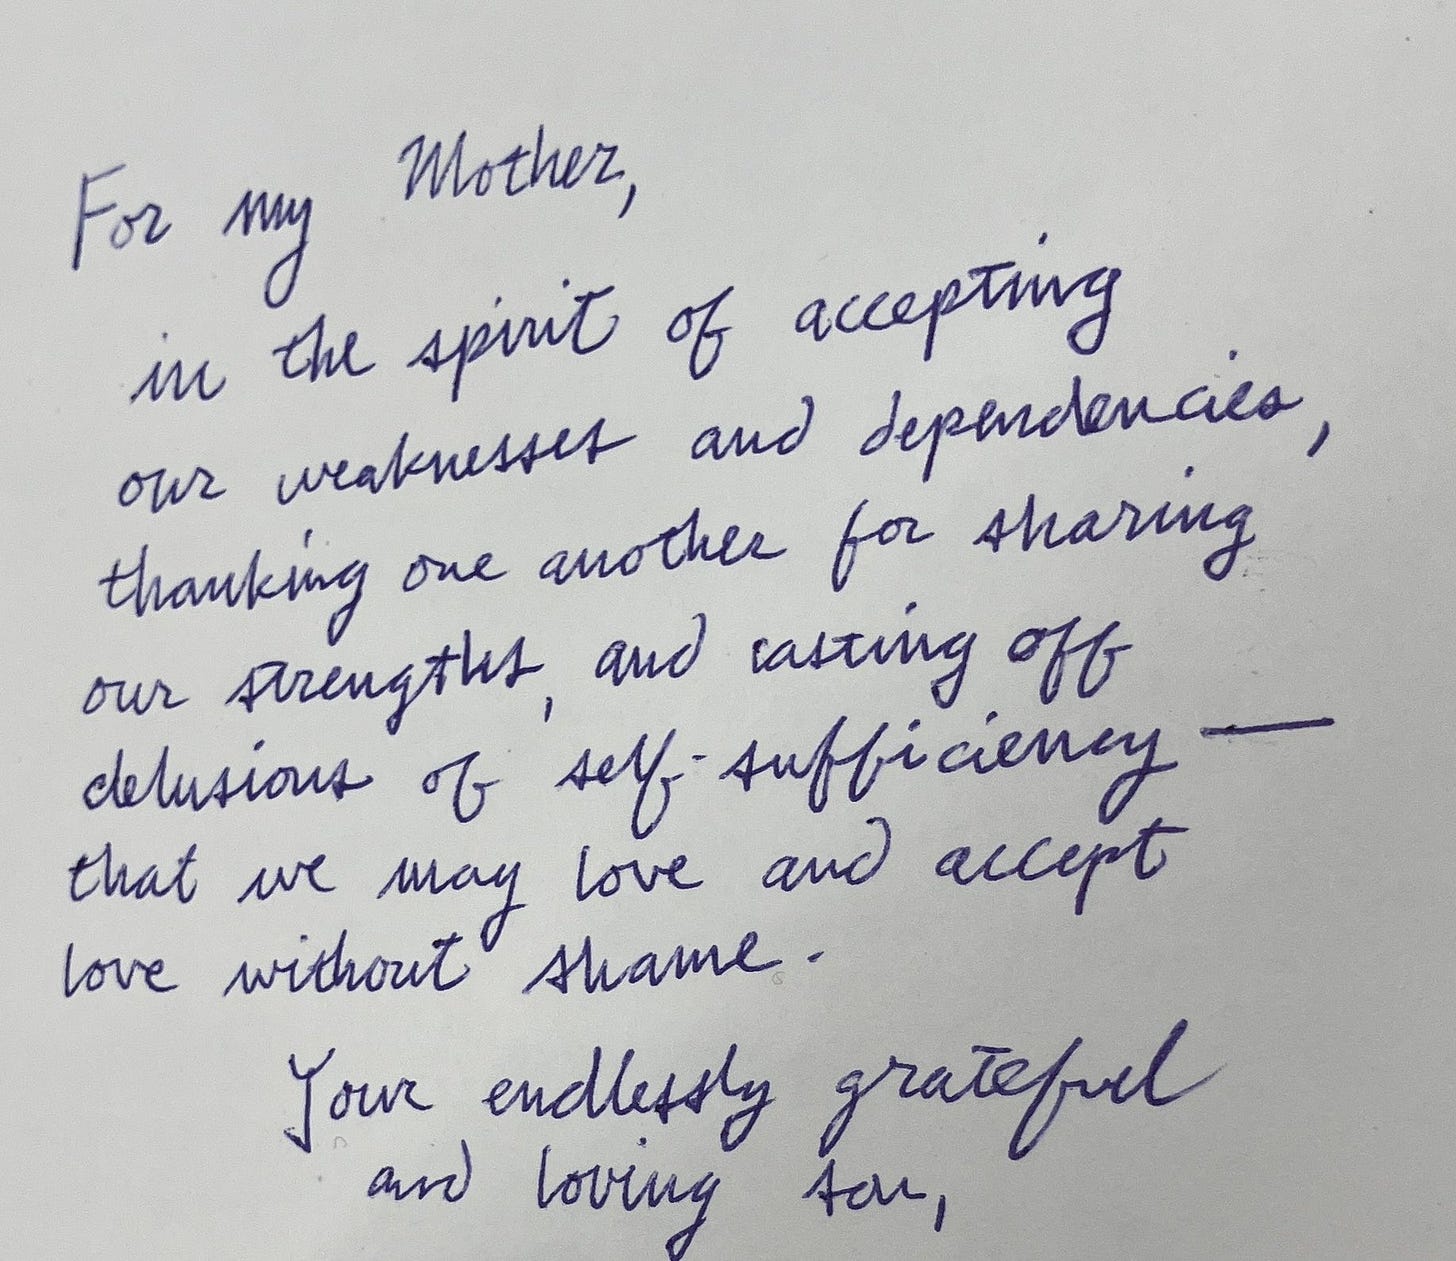 For my Mother,
in the spirit of accepting
our weaknesses and dependencies,
thanking one another for sharing
our strengths, and casting off
delusions of self-sufficiency —
that we may love and accept
love without shame.
Your endlessly grateful
and loving son,